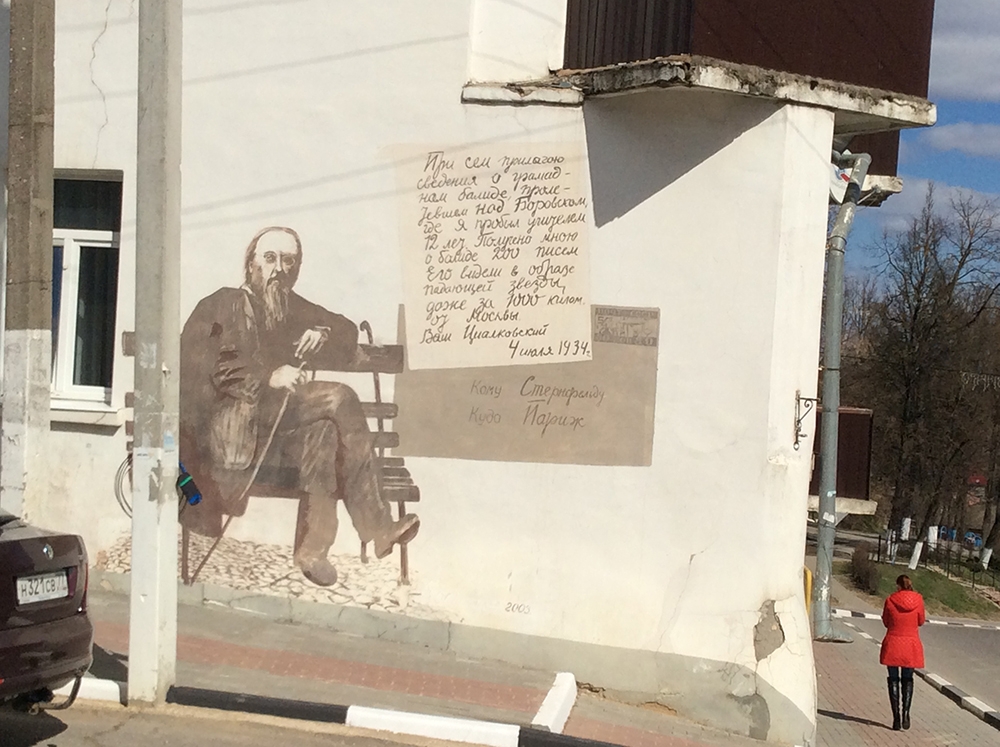 При сем прилагаю
сведения о громад-
ном балиде проле-
тевшем над Боровском,
где я пробыл учителем
12 лет. Получено мною
о балиде 200 писем
Его видели в образе
падающей звезды,
даже за 1000 килом.
от Москвы
Ваш Циалковский
4 июля 1934г.
Кому Стернфельду
Куда Париж
2003
Н321СВ 77